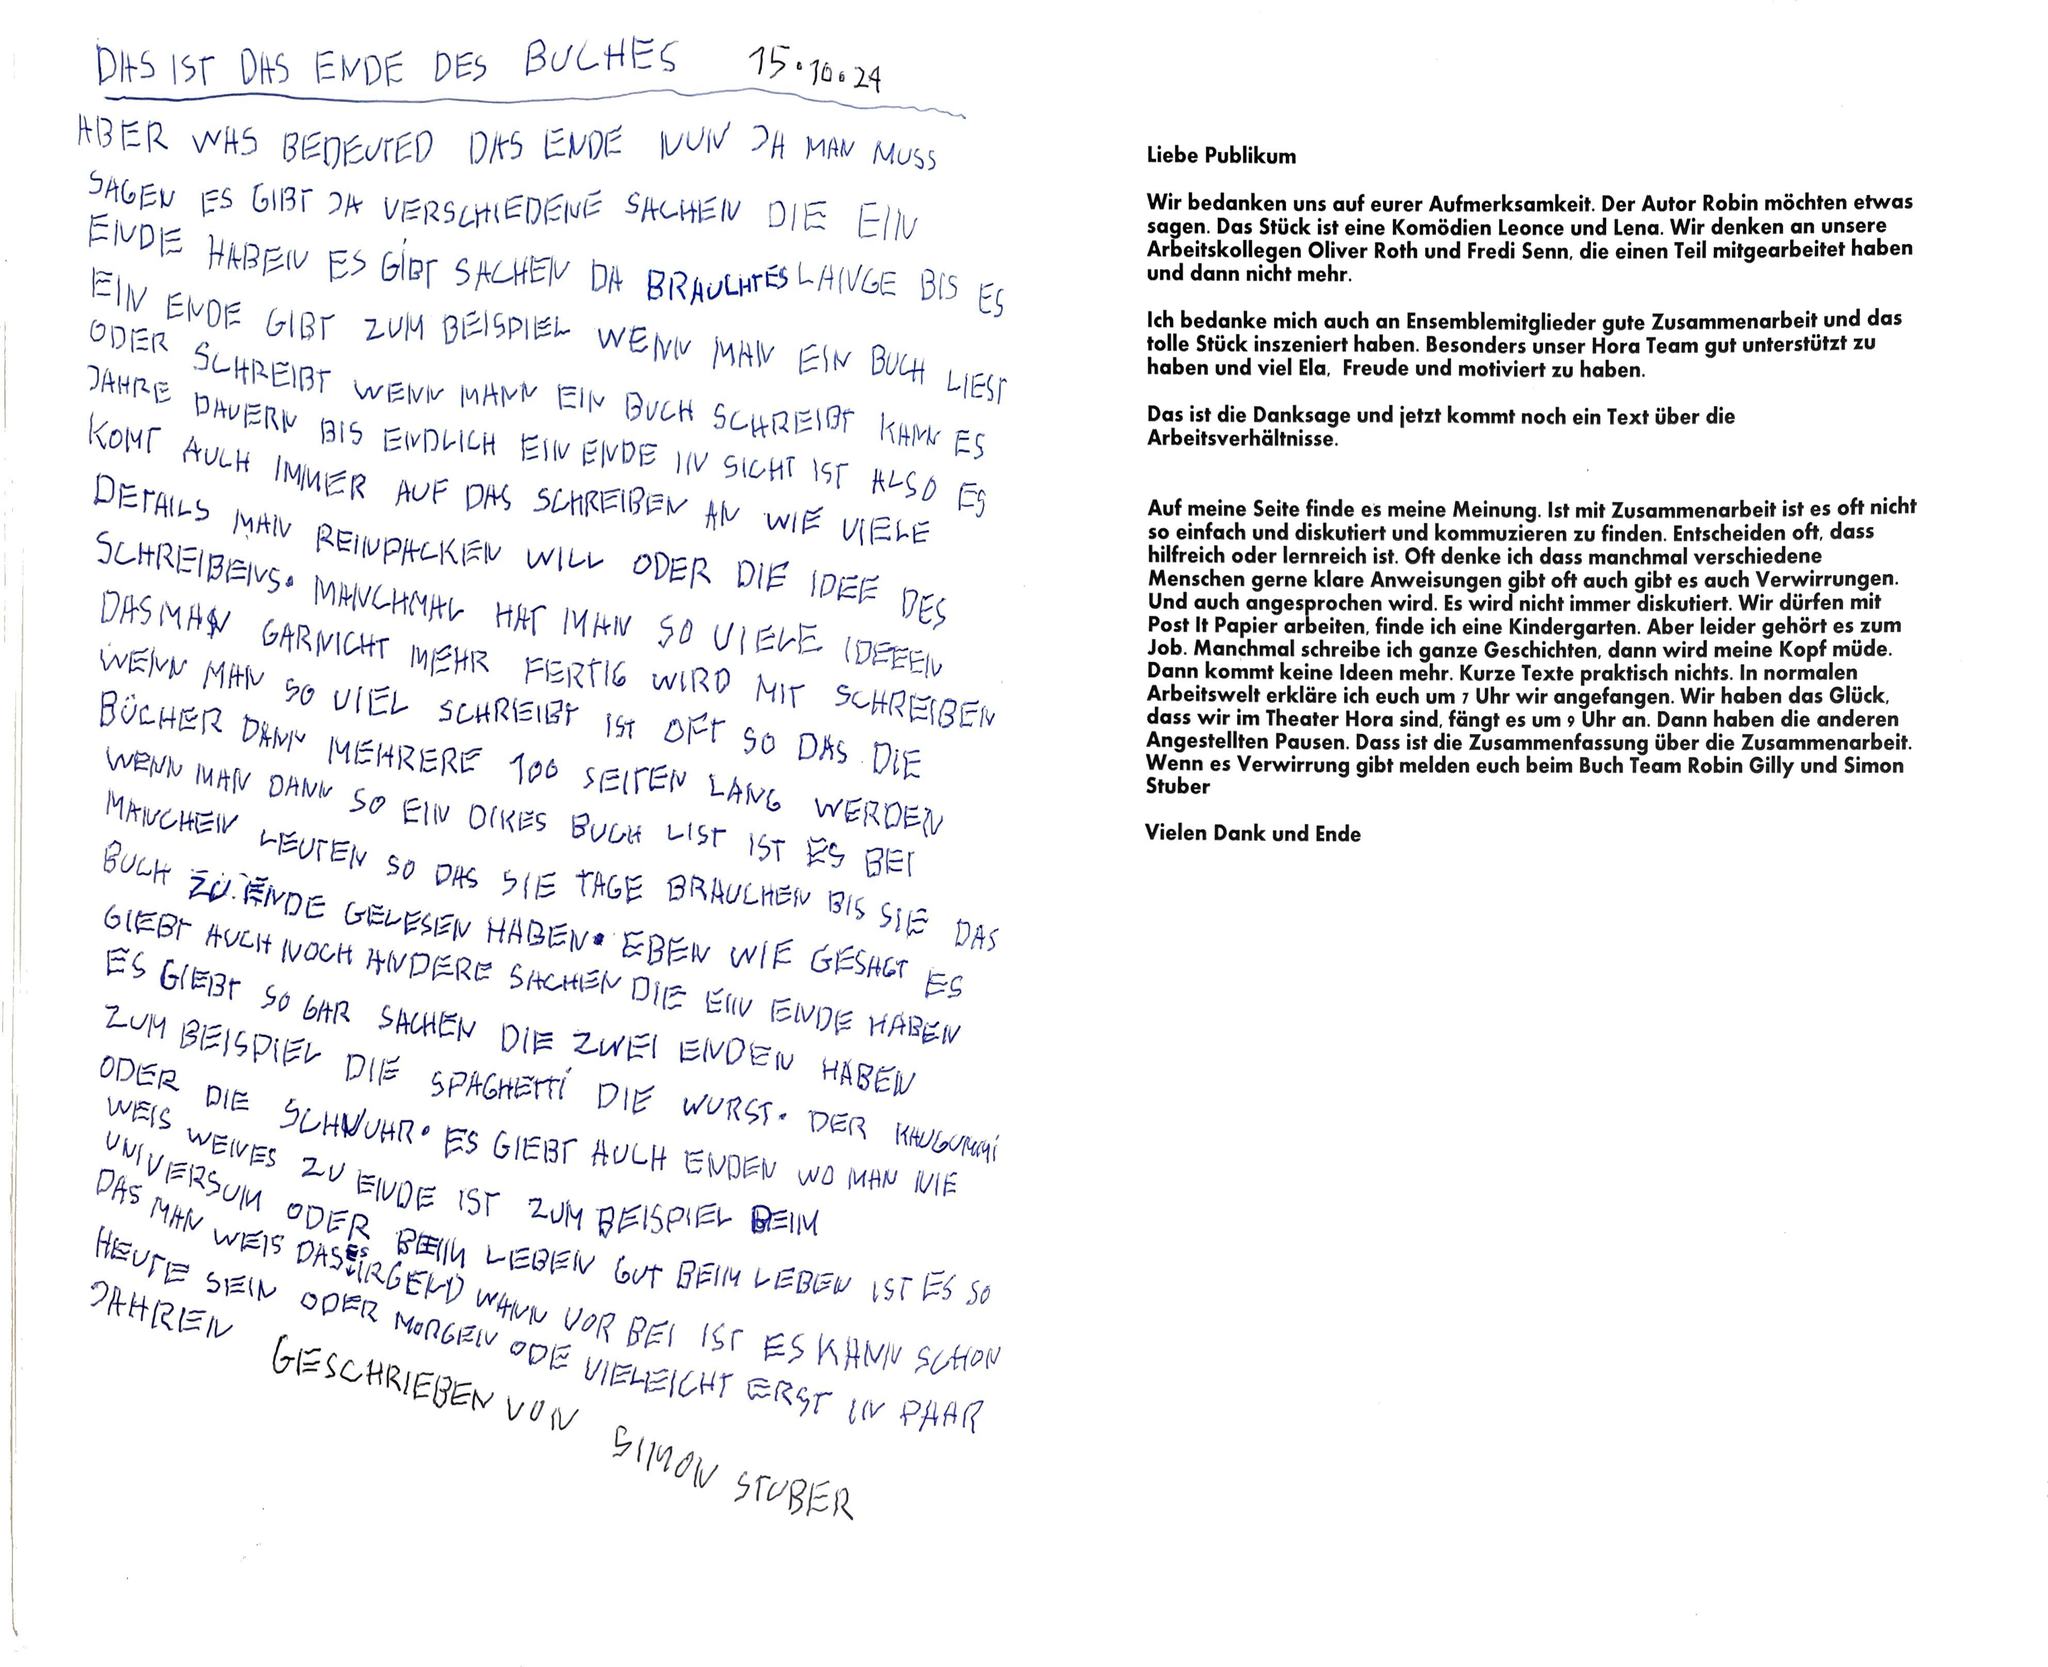 DAS IST DAS ENDE DES BUCHES 15.10.24
ABER WAS BEDEUTED DAS ENDE NUN JA MAN MUSS
SAGEN ES GIBT JA VERSCHIEDENE SACHEN DIE EIN
ENDE HABEN ES GIBT SACHEN DA BRAUCHT ES LANGE BIS ES
EIN ENDE GIBT ZUM BEISPIEL WENN MAN EIN BUCH LIEST
ODER SCHREIBT WENN MANN EIN BUCH SCHREIBT KANN ES
JAHRE DAUERN BIS ENDLICH EIN ENDE IN SICHT IST ALSO ES
KOMT AUCH IMMER AUF DAS SCHREIBEN AN WIE VIELE
DETAILS MAN REINPACKEN WILL ODER DIE IDEE DES
SCHREIBENS. MANCHMAL HAT MAN SO VIELE IDEEEN
DAS MAN GARNICHT MEHR FERTIG WIRD MIT SCHREIBEN
WENN MAN SO VIEL SCHREIBT IST OFT SO DAS DIE
BÜCHER DANN MEHRERE 100 SEITEN LANG WERDEN
WENN MAN DANN SO EIN DIKES BUCH LIST IST ES BEI
MANCHEN LEUTEN SO DAS SIE TAGE BRAUCHEN BIS SIE DAS
BUCH ZU ENDE GELESEN HABEN. EBEN WIE GESAGT ES
GIEBT AUCH NOCH ANDERE SACHEN DIE EIN ENDE HABEN
ES GIEBT SO GAR SACHEN DIE ZWEI ENDEN HABEN
ZUM BEISPIEL DIE SPAGHETTI DIE WURST. DER KAUGUMMI
ODER DIE SCHNUHR. ES GIEBT AUCH ENDEN WO MAN NIE
WEIS WENES ZU ENDE IST ZUM BEISPIEL BEIM
UNIVERSUM ODER BEIM LEBEN GUT BEIM LEBEN IST ES SO
DAS MAN WEIS DAS ES IRGEND WANN VOR BEI IST ES KANN SCHON
HEUTE SEIN ODER MORGEN ODE VIELEICHT ERST IN PAAR
JAHREN GESCHRIEBEN VON SIMON STUBER
Liebe Publikum
Wir bedanken uns auf eurer Aufmerksamkeit. Der Autor Robin möchten etwas
sagen. Das Stück ist eine Komödien Leonce und Lena. Wir denken an unsere
Arbeitskollegen Oliver Roth und Fredi Senn, die einen Teil mitgearbeitet haben
und dann nicht mehr.
Ich bedanke mich auch an Ensemblemitglieder gute Zusammenarbeit und das
tolle Stück inszeniert haben. Besonders unser Hora Team gut unterstützt zu
haben und viel Ela, Freude und motiviert zu haben.
Das ist die Danksage und jetzt kommt noch ein Text über die
Arbeitsverhältnisse.
Auf meine Seite finde es meine Meinung. Ist mit Zusammenarbeit ist es oft nicht
so einfach und diskutiert und kommuzieren zu finden. Entscheiden oft, dass
hilfreich oder lernreich ist. Oft denke ich dass manchmal verschiedene
Menschen gerne klare Anweisungen gibt oft auch gibt es auch Verwirrungen.
Und auch angesprochen wird. Es wird nicht immer diskutiert. Wir dürfen mit
Post It Papier arbeiten, finde ich eine Kindergarten. Aber leider gehört es zum
Job. Manchmal schreibe ich ganze Geschichten, dann wird meine Kopf müde.
Dann kommt keine Ideen mehr. Kurze Texte praktisch nichts. In normalen
Arbeitswelt erkläre ich euch um 7 Uhr wir angefangen. Wir haben das Glück,
dass wir im Theater Hora sind, fängt es um 9 Uhr an. Dann haben die anderen
Angestellten Pausen. Dass ist die Zusammenfassung über die Zusammenarbeit.
Wenn es Verwirrung gibt melden euch beim Buch Team Robin Gilly und Simon
Stuber
Vielen Dank und Ende